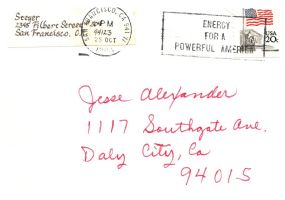 Seeger
2345 Filbert Street
San Francisco, C
SAN FRANCISCO, CA 941
PM
25 OCT
ENERGY
FOR A
POWERFUL AMERICA
USA
20c
Jesse Alexander
1117 Southgate Ave.
Daly City, Ca
94015